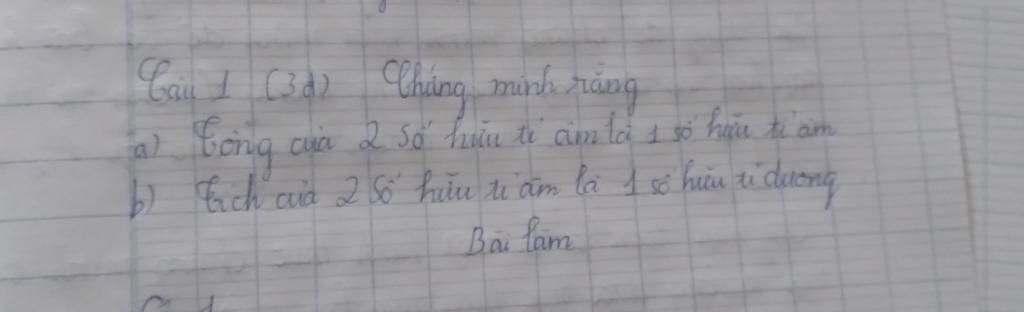 Câu 1 (3đ) Chứng minh rằng
a) Tổng của 2 số hữu tỉ âm là 1 số hữu tỉ âm
b) Tích của 2 số hữu tỉ âm là 1 số hữu tỉ dương
Bài làm